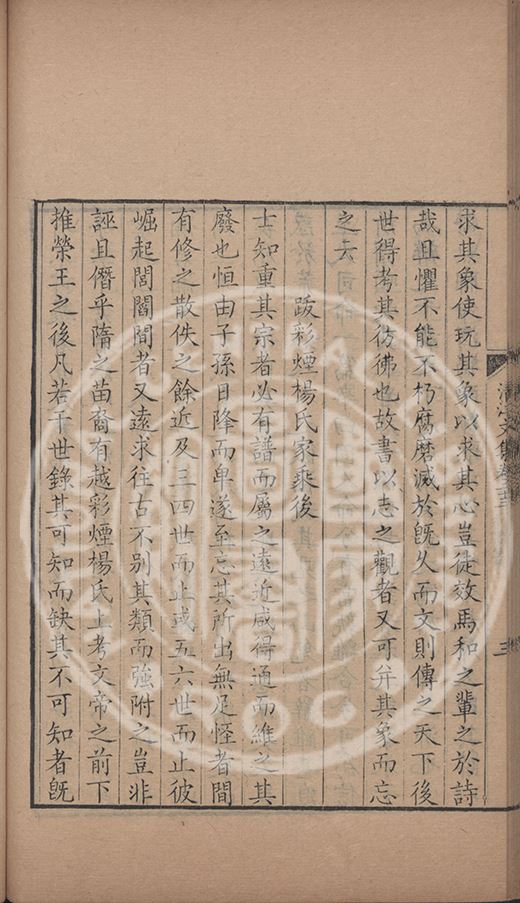 求其象使玩其象以求其心豈徒效馬和之輩之於詩
哉且懼不能不朽腐磨滅於旣久而文則傳之天下後
世得考其彷彿也故書以志之觀者又可并其象而忘
之云
跋彩煙楊氏家乘後
士知重其宗者必有譜而屬之遠近咸得通而維之其
廢也恒由子孫日降而卑遂至忘其所出無足怪者間
有修之散佚之餘近及三四世而止或五六世而止彼
崛起閭閻間者又遠求往古不別其類而強附之豈非
誣且僭乎隋之苗裔有越彩煙楊氏上考文帝之前下
推榮王之後凡若干世錄其可知而缺其不可知者旣
三